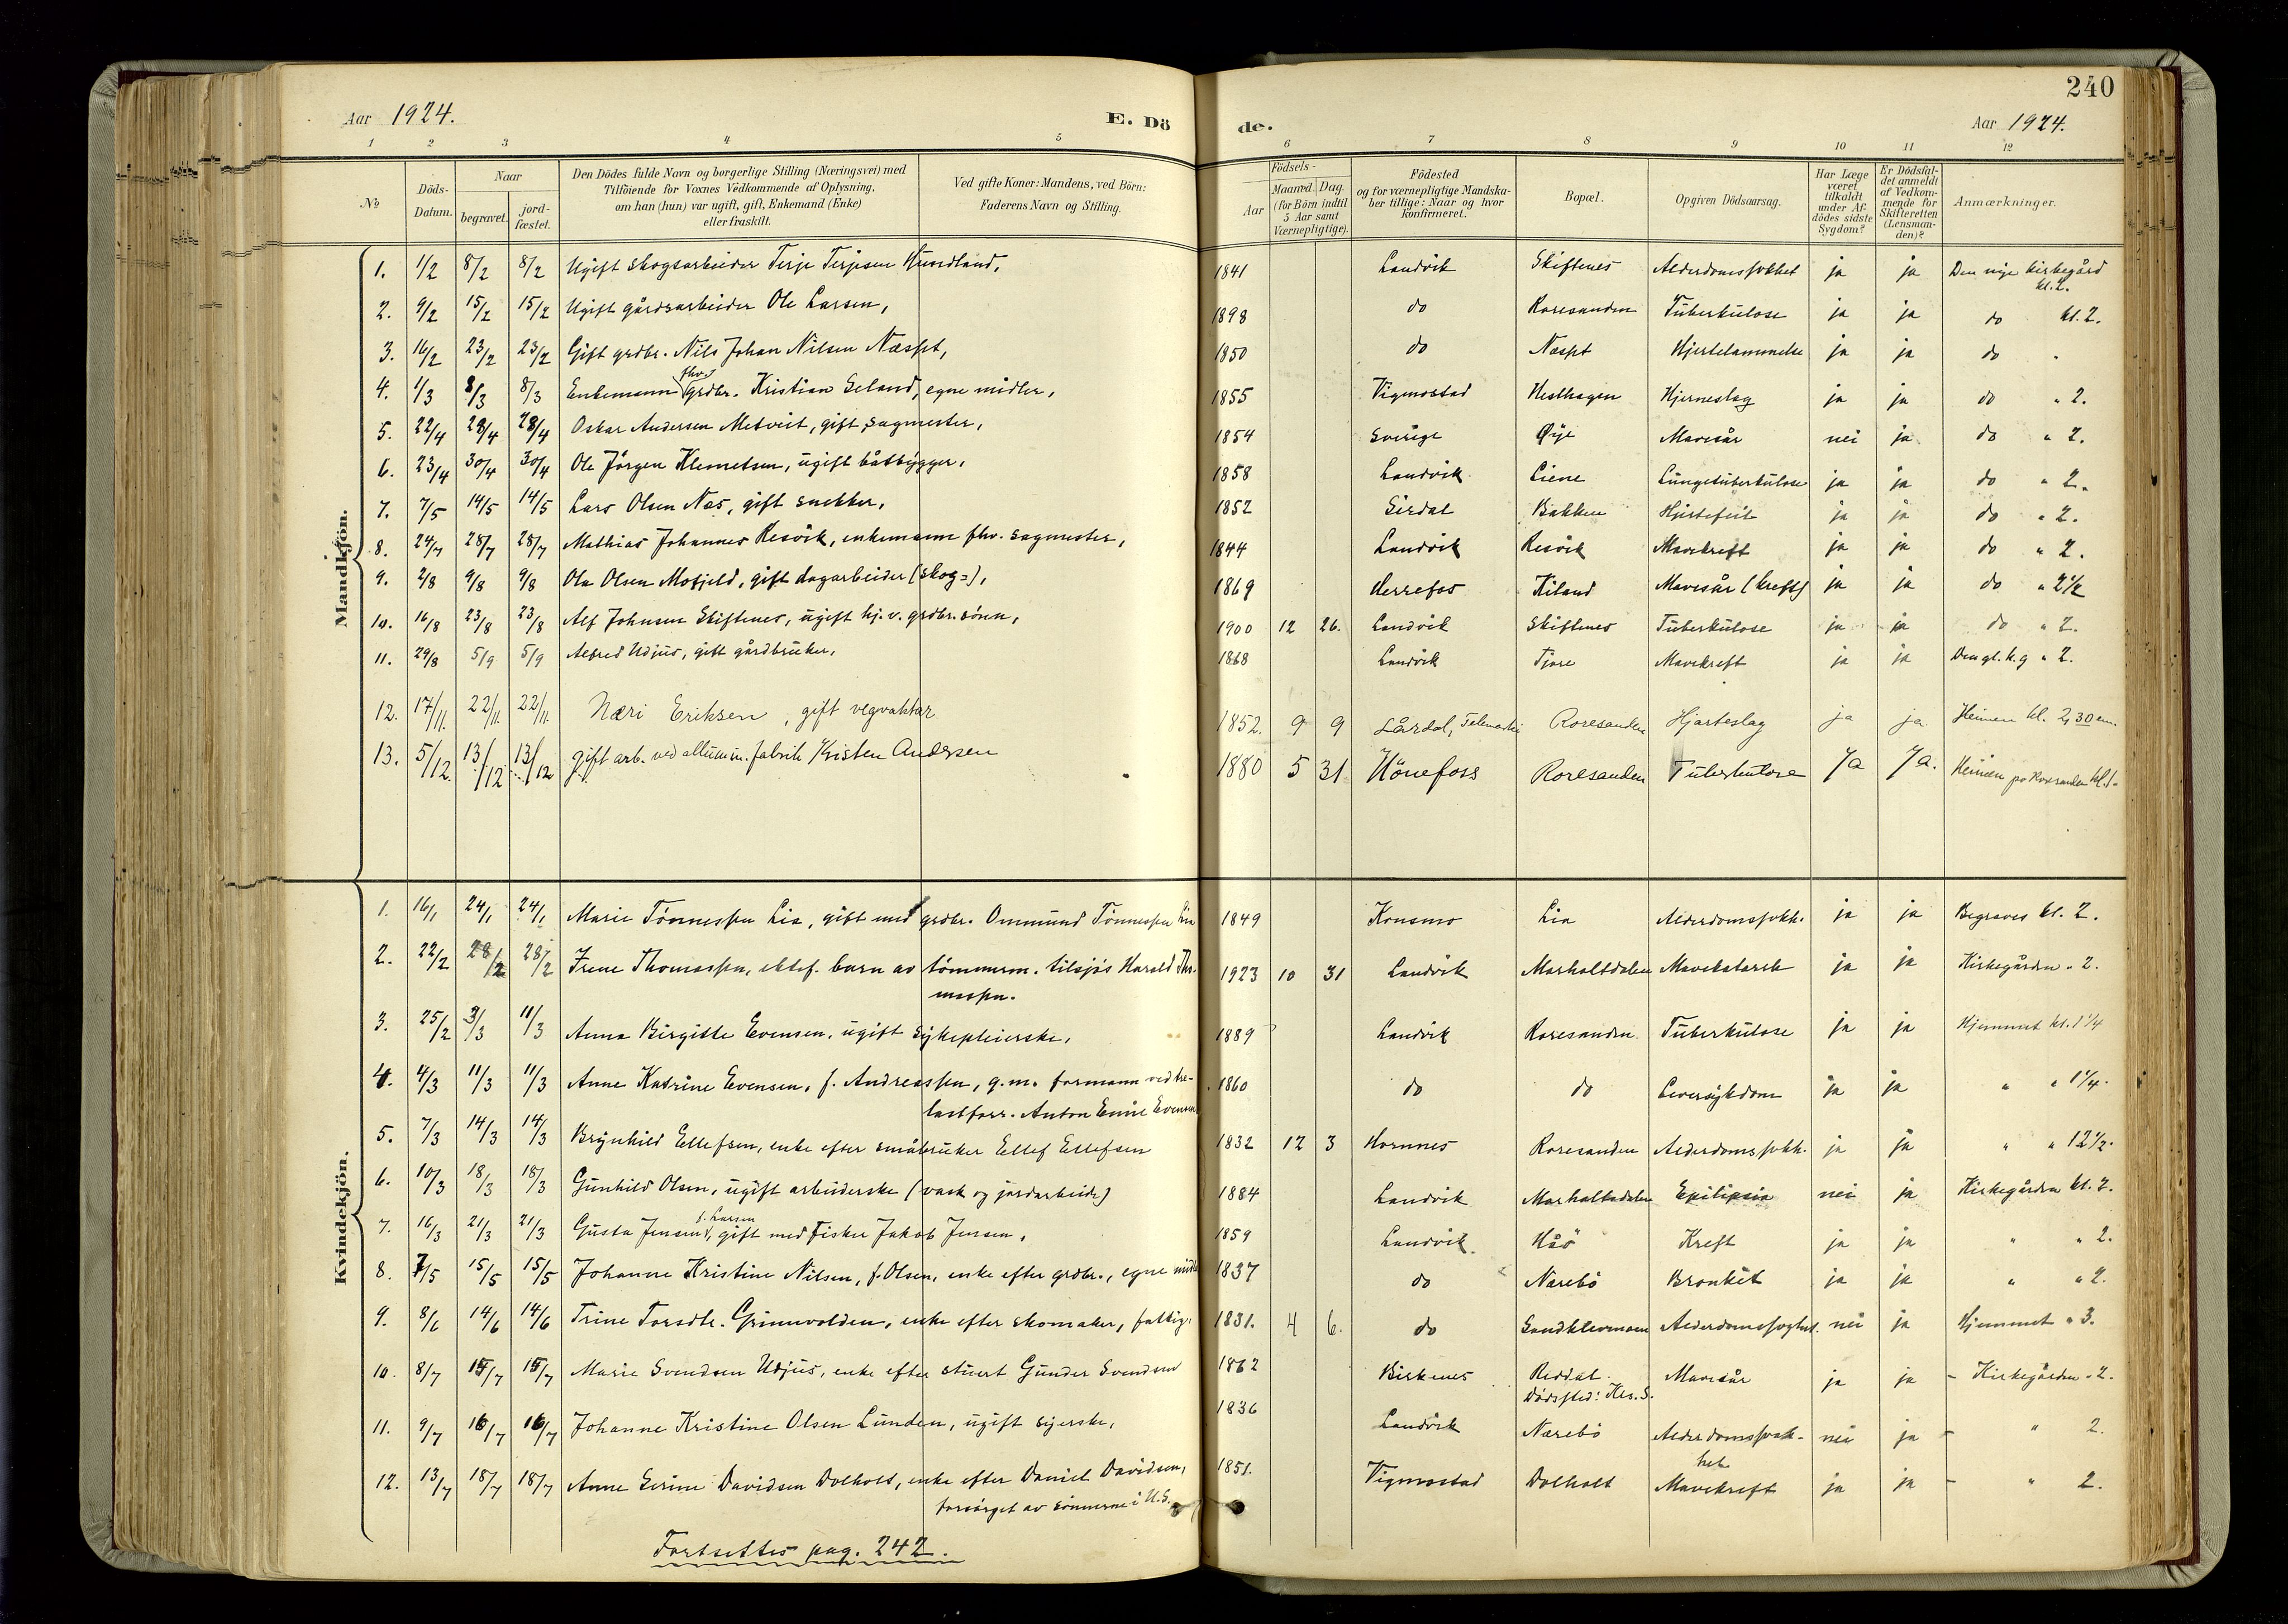 240
Aar 1924.
E. Döde.
Aar 1924.
1 2 3 4 5 6 7 8 9 10 11 12
No
Döds-Datum.
Naar
begravet.
jord-fæstet.
Den Dödes fulde Navn og borgerlige Stilling (Næringsvei) med
Tilföiende for Voxnes Vedkommende af Oplysning,
om han (hun) var ugift, gift, Enkemand (Enke)
eller fraskilt.
Ved gifte Koner: Mandens, ved Börn:
Faderens Navn og Stilling.
Födsels-
Aar
Maaned. Dag.
(for Börn indtil
5 Aar samt
Værnepligtige).
Födested
og for værnepligtige Mandska-
ber tillige: Naar og hvor
konfirmeret.
Bopæl.
Opgiven Dödsaarsag.
Har Læge
været
tilkaldt
under Af-
dödes sidste
Sygdom?
Er Dödsfal-
det anmeldt
af Vedkom-
mende for
Skifteretten
(Lensman-
den)?
Anmærkninger.
Mandkjön.
1. 1/2 8/2 8/2 Ugift skogsarbeider Terje Terjesen Hundland, 1841 Landvik Skiftenes Alderdomssvkhet ja ja Den nye kirkegård kl. 2.
2. 9/2 15/2 15/2 Ugift gårdsarbeider Ole Larsen, 1898 do Roresanden Tuberkulose ja ja do kl. 2.
3. 16/2 23/2 23/2 Gift grdbr. Nils Johan Nilsen Næsset, 1850 do Næsset Hjertelammelse ja ja do "
4. 1/3 8/3 8/3 Enkemann fhv. grdbr. Kristian Eeland, egne midler, 1855 Vigmostad Hesthagen Hjerneslag ja ja do " 2.
5. 22/4 28/4 28/4 Oskar Andersen Metveit, gift, sagmester, 1854 Sverige Øye Mavesår nei ja do " 2.
6. 23/4 30/4 30/4 Ole Jörgen Klemetsen, ugift båtbygger, 1858 Landvik Liene Lungetuberkulose ja ja do " 2.
7. 7/5 14/5 14/5 Lars Olsen Næs, gift snekker, 1852 Sirdal Bakken Hjertefeil ja ja do " 2.
8. 24/7 28/7 28/7 Mathias Johannes Resvik, enkemann fhv. sagmester, 1844 Landvik Resvik Mavekreft ja ja do " 2.
9. 2/8 9/8 9/8 Ola Olsen Mosfjeld, gift dagarbeider (skog=), 1869 Herrefos Kiland Mavesår (kreft) ja ja do " 2 1/2
10. 16/8 23/8 23/8 Alf Johnsen Skiftenes, ugift hj. v. grdbr. sönn, 1900 12 26. Landvik Skiftenes Tuberkulose ja ja do " 2.
11. 29/8 5/9 5/9 Alfred Udjus, gift gårdbruker, 1868 Landvik Tjore Mavekreft ja ja Den gl. k.g " 2.
12. 17/11. 22/11. 22/11. Næri Eriksen, gift vegvaktar 1852. 9 9 Lårdal, Telemark Roresanden Hjarteslag ja ja Heimen kl. 2,30 em.
13. 5/12. 13/12 13/12 gift arb. ved allumin. fabrik Kristen Andersen 1880 5 31 Hönefoss Roresanden Tuberkulose ja ja. Heimen på Roresanden kl. 1
Kvindekjön.
1. 16/1 24/1 24/1 Marie Tönnessen Lia, gift med grdbr. Ommund Tönnessen Lia 1849 Konsmo Lia Alderdomssvkh. ja ja Begraves kl. 2.
2. 22/2 28/2 28/2 Irene Thomassen, ektef. barn av tömmerm. tilsjös Harald Tho-
massen. 1923 10 31 Landvik Morholtdalen Mavekatarrh ja ja Kirkegården " 2.
3. 25/2 3/3 11/3 Anna Birgitte Evensen, ugift sykepleierske, 1889 Landvik Roresanden Tuberkulose ja ja Hjemmet kl. 1 1/4
4. 4/3 11/3 11/3 Anne Katrine Evensen, f. Andreassen, g.m. formann ved tre-
lastforr. Anton Emil Evensen 1860 do do Leversykdom ja ja " " 1 1/4.
5. 7/3 14/3 14/3 Brynhild Ellefsen, enke efter småbruker Ellef Ellefsen 1832 12 3 Hornnes Roresanden Alderdomssvkh. ja ja " " 12 1/2.
6. 10/3 18/3 18/3 Gunhild Olsen, ugift arbeiderske (vask og jordarbeide) 1884 Landvik Morholtsdalen Epilepsia nei ja Kirkegården kl. 2.
7. 16/3 21/3 21/3 Gusta Jensen f. Larsen, gift med fisker Jakob Jensen, 1859 Landvik Håö Kreft ja ja " " 2.
8. 7/5 15/5 15/5 Johanne Kristine Nilsen, f. Olsen, enke efter grdbr., egne midler 1837 do Nærebö Bronkit ja ja " " 2.
9. 8/6 14/6 14/6 Trine Torsdtr. Grimevolden, enke efter skomaker, fattig. 1831. 4 6. do Sandklevmoen Alderdomssvghet. nei ja Hjemmet " 3.
10. 8/7 15/7 15/7 Marie Svendsen Udjus, enke efter stuert Gunder Svendsen 1862 Birkenes Reddal Dödssted: Kr.s. S. Mavesår ja ja - Kirkegården " 2.
11. 9/7 16/7 16/7 Johanne Kristine Olsen Lunden, ugift syerske, 1836 Landvik Nærebö Alderdomssvak-
het nei ja - " 2.
12. 13/7 18/7 18/7 Anne Serine Davidsen Dolholt, enke efter Daniel Davidsen,
forsörget av sönnerne i U.S. 1851. Vigmostad Dolholt Mavekreft ja ja - " 2.
Fortsettes pag. 242.